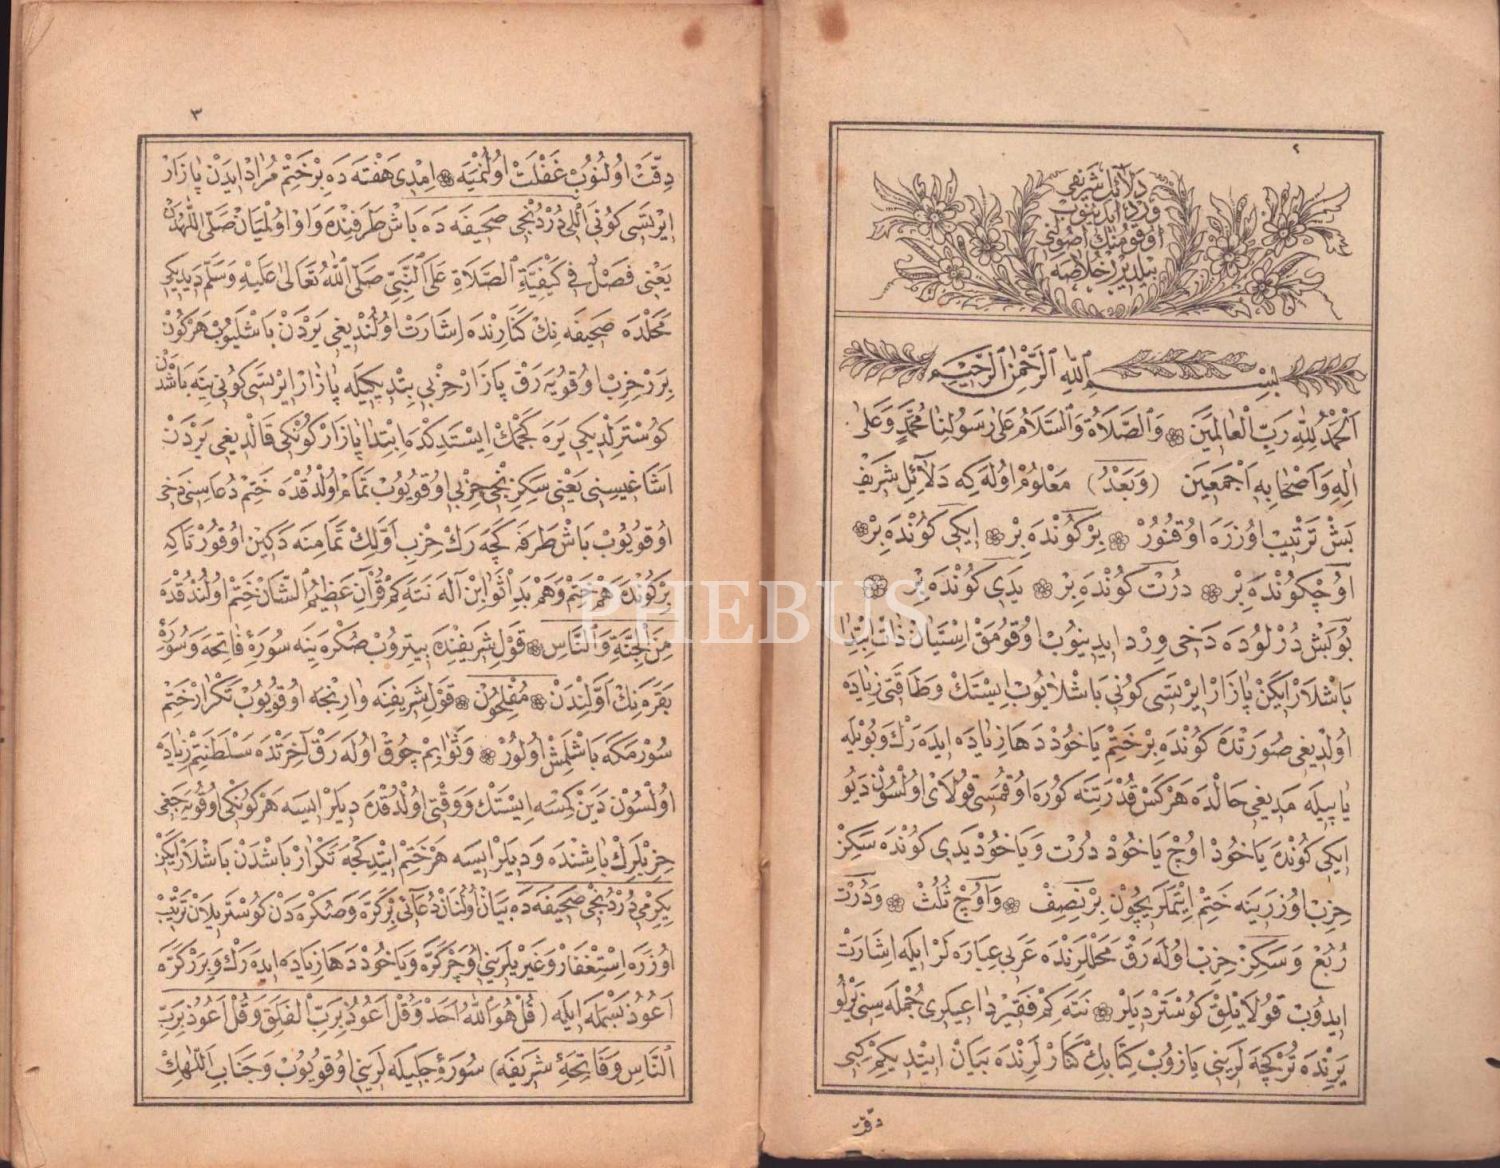 ٢
دلائل شريفى
ورد ايدينوب
اوقومنك اصولنى
بيلديرر خلاصه
بِسْمِ اللّٰهِ الرَّحْمٰنِ الرَّحِيمِ
اَلْحَمْدُ لِلّٰهِ رَبِّ الْعَالَمِينَ ❁ وَالصَّلَاةُ وَالسَّلَامُ عَلٰى رَسُولِنَا مُحَمَّدٍ وَعَلٰى
اٰلِهِ وَاَصْحَابِهِ اَجْمَعِينَ (وَبَعْدُ) مَعْلُومْ اُولَه كِه دَلَآئِلِ شَرِيفْ
بَشْ تَرْتِيبْ اوُزَرَه اوُقُنُورْ ❁ بِرْ كوُنْدَه بِرْ ❁ ايكى كوُنْدَه بِرْ
اوُچْ كوُنْدَه بِرْ ❁ دُرْتْ كوُنْدَه بِرْ ❁ يَدِى كوُنْدَه بِرْ ❁
بُو بَشْ دُرْلُودَه دَخِى وِرْدْ ايدينوُبْ اوُقوُمَقْ اِسْتِيَانْ ذَاتْ اِبْتِدَا
بَاشْلَارْ ايكَنْ پَازَارْ ايرْتَسِى كوُنِى بَاشْلَايوُبْ ايسْتَكْ وَطَاقَتِى زِيَادَه
اوُلْديغِى صُورَتْدَه كوُنْدَه بِرْ خَتِمْ يَاخُودْ دَهَا زِيَادَه ايدَه رَكْ وَبوُيلَه
يَاپِيلَه مَديغِى حَالْدَه هَرْكَسْ قُدْرَتِنَه كورَه اوُقُمَسِى قوُلَاىْ اوُلْسوُنْ ديُو
ايكى كوُنْدَه يَاخُودْ اوُچْ يَاخُودْ دُرْتْ وَيَاخُودْ يَدِى كوُنْدَه سَكِزْ
حِزِبْ اوُزَرينَه خَتِمْ ايتْمَلَرِيچُونْ بِرْ نِصِفْ ❁ وَاوُچْ ثُلُثْ ❁ وَدُرْتْ
رُبُعْ وَسَكِزْ حِزِبْ اوُلَه رَقْ مَحَلْلَرِنْدَه عَرَبِى عِبَارَه لَرْ ايلَه اِشَارَتْ
ايدوُبْ قوُلَايْلِقْ كوُسْتَرْديلَرْ ❁ نَتَه كِمْ فَقيرْ دَاعيلَرِى جُمْلَه سِنِى يَرْلُو
يَرِنْدَه تُرْكچَه لَرِينِى يَازوُبْ كِتَابِكْ كَنَارْلَرِنْدَه بَيَانْ ايتْديكِمْ كِبِى
دقت
٣
دِقَّتْ اوُلُنوُبْ غَفْلَتْ اوُلُنْمَيَه ❁ اِمْدِى هَفْتَه دَه بِرْ خَتِمْ مُرَادْ ايدَنْ پَازَارْ
ايرْتَسِى كوُنِى اَللِّى دُرْدُنْجِى صَحِيفَه دَه بَاشْ طَرَفِنْدَه وَاوْ اوُلْمَيَانْ صَلِّ اللّٰهُمَّدَنْ
يَعْنِى فَصْلٌ فِى كَيْفِيَّةِ الصَّلَاةِ عَلَى النَّبِىِّ صَلَّى اللّٰهُ تَعَالٰى عَلَيْهِ وَسَلَّمَ ديديكى
مَحَلْدَه صَحِيفَه نِكْ كَنَارِنْدَه اِشَارَتْ اوُلُنْديغِى يَرْدَنْ بَاشْلَيوُبْ هَرْكوُنْ
بِرَرْ حِزِبْ اوُقوُيَه رَقْ پَازَارْ حِزْبِى بِتْديكيلَه پَازَارْ ايرْتَسِى كوُنِى يِنَه بَاشْدَنْ
كوُسْتَرِلْديكى يَرَه كَچْمَكْ ايسْتَدِكْدَه مَابِتْدَا پَازَارْ كوُنْكى قَالْديغِى يَرْدَنْ
اَشَاغيسِنِى يَعْنِى سَكِزِنْجِى حِزْبِى اوُقوُيوُبْ تَمَامْ اوُلْدُقْدَه خَتِمْ دُعَاسِنِى دَخِى
اوُقوُيوُبْ بَاشْ طَرَفَه كَچَه رَكْ حِزْبِ اَوَّلِكْ تَمَامِنَه دَكِينْ اوُقوُرْ تَاكِه
بِرْ كوُنْدَه هَمْ خَتِمْ وَهَمْ بَدْاْ ثَوَابِنْ اَلَه نَتَه كِمْ قُرْآنِ عَظِيمُ الشَّانْ خَتِمْ اوُلُنْدُقْدَه
مِنَ الْجِنَّةِ وَالنَّاسِ ❁ قَوْلِ شَرِيفِنْدَه بيتروُبْ صُكْرَه يِنَه سُورَهٔ فَاتِحَه وَسُورَهٔ
بَقَرَه نِكْ اَوَّلِنْدَنْ ❁ مُفْلِحُونْ ❁ قَوْلِ شَرِيفِنَه وَارِنْجَه اوُقوُيوُبْ تَكْرَارْ خَتِمْ
سُورْمَكَه بَاشْلَمِشْ اوُلوُرْ ❁ وَثَوَابِمْ چوُقْ اوُلَه رَقْ آخِرَتْدَه سَلْطَنَتِمْ زِيَادَه
اوُلْسُوْن دَيَنْ كِمْسَه ايسْتَكْ وَوَقْتِى اوُلْدُقْدَه ديلَرْ ايسَه هَرْ كوُنْكى اوُقُويَه جَغِى
حِزِبْلَرِكْ بَاشِنْدَه وَديلَرْ ايسَه هَرْ خَتِمْ ايتْدِكْجَه تَكْرَارْ بَاشْدَنْ بَاشْلَارْ ايكَنْ
يكِرْمِى دُرْدُنْجِى صَحِيفَه دَه بَيَانْ اوُلُنَانْ دُعَايِى بِرْ كَرَّه وَصُكْرَه دَنْ كوُسْتَريلَانْ تَرْتِيبْ
اوُزَرَه اِسْتِغْفَارْ وَغَيْريلَرِينِى اوُچَرْ كَرَّه وَيَاخُودْ دَهَا زِيَادَه ايدَه رَكْ وَبِرَرْ كَرَّه
اَعُوذُ بَسْمَلَه ايلَه (قُلْ هُوَ اللّٰهُ اَحَدْ وَقُلْ اَعُوذُ بِرَبِّ الْفَلَقِ وَقُلْ اَعُوذُ بِرَبِّ
النَّاسِ وَفَاتِحَهٔ شَرِيفَه) سُورَهٔ جَلِيلَه لَرِينِى اوُقوُيوُبْ وَجَنَابِ اَللّٰهِكْ
PHEBUS